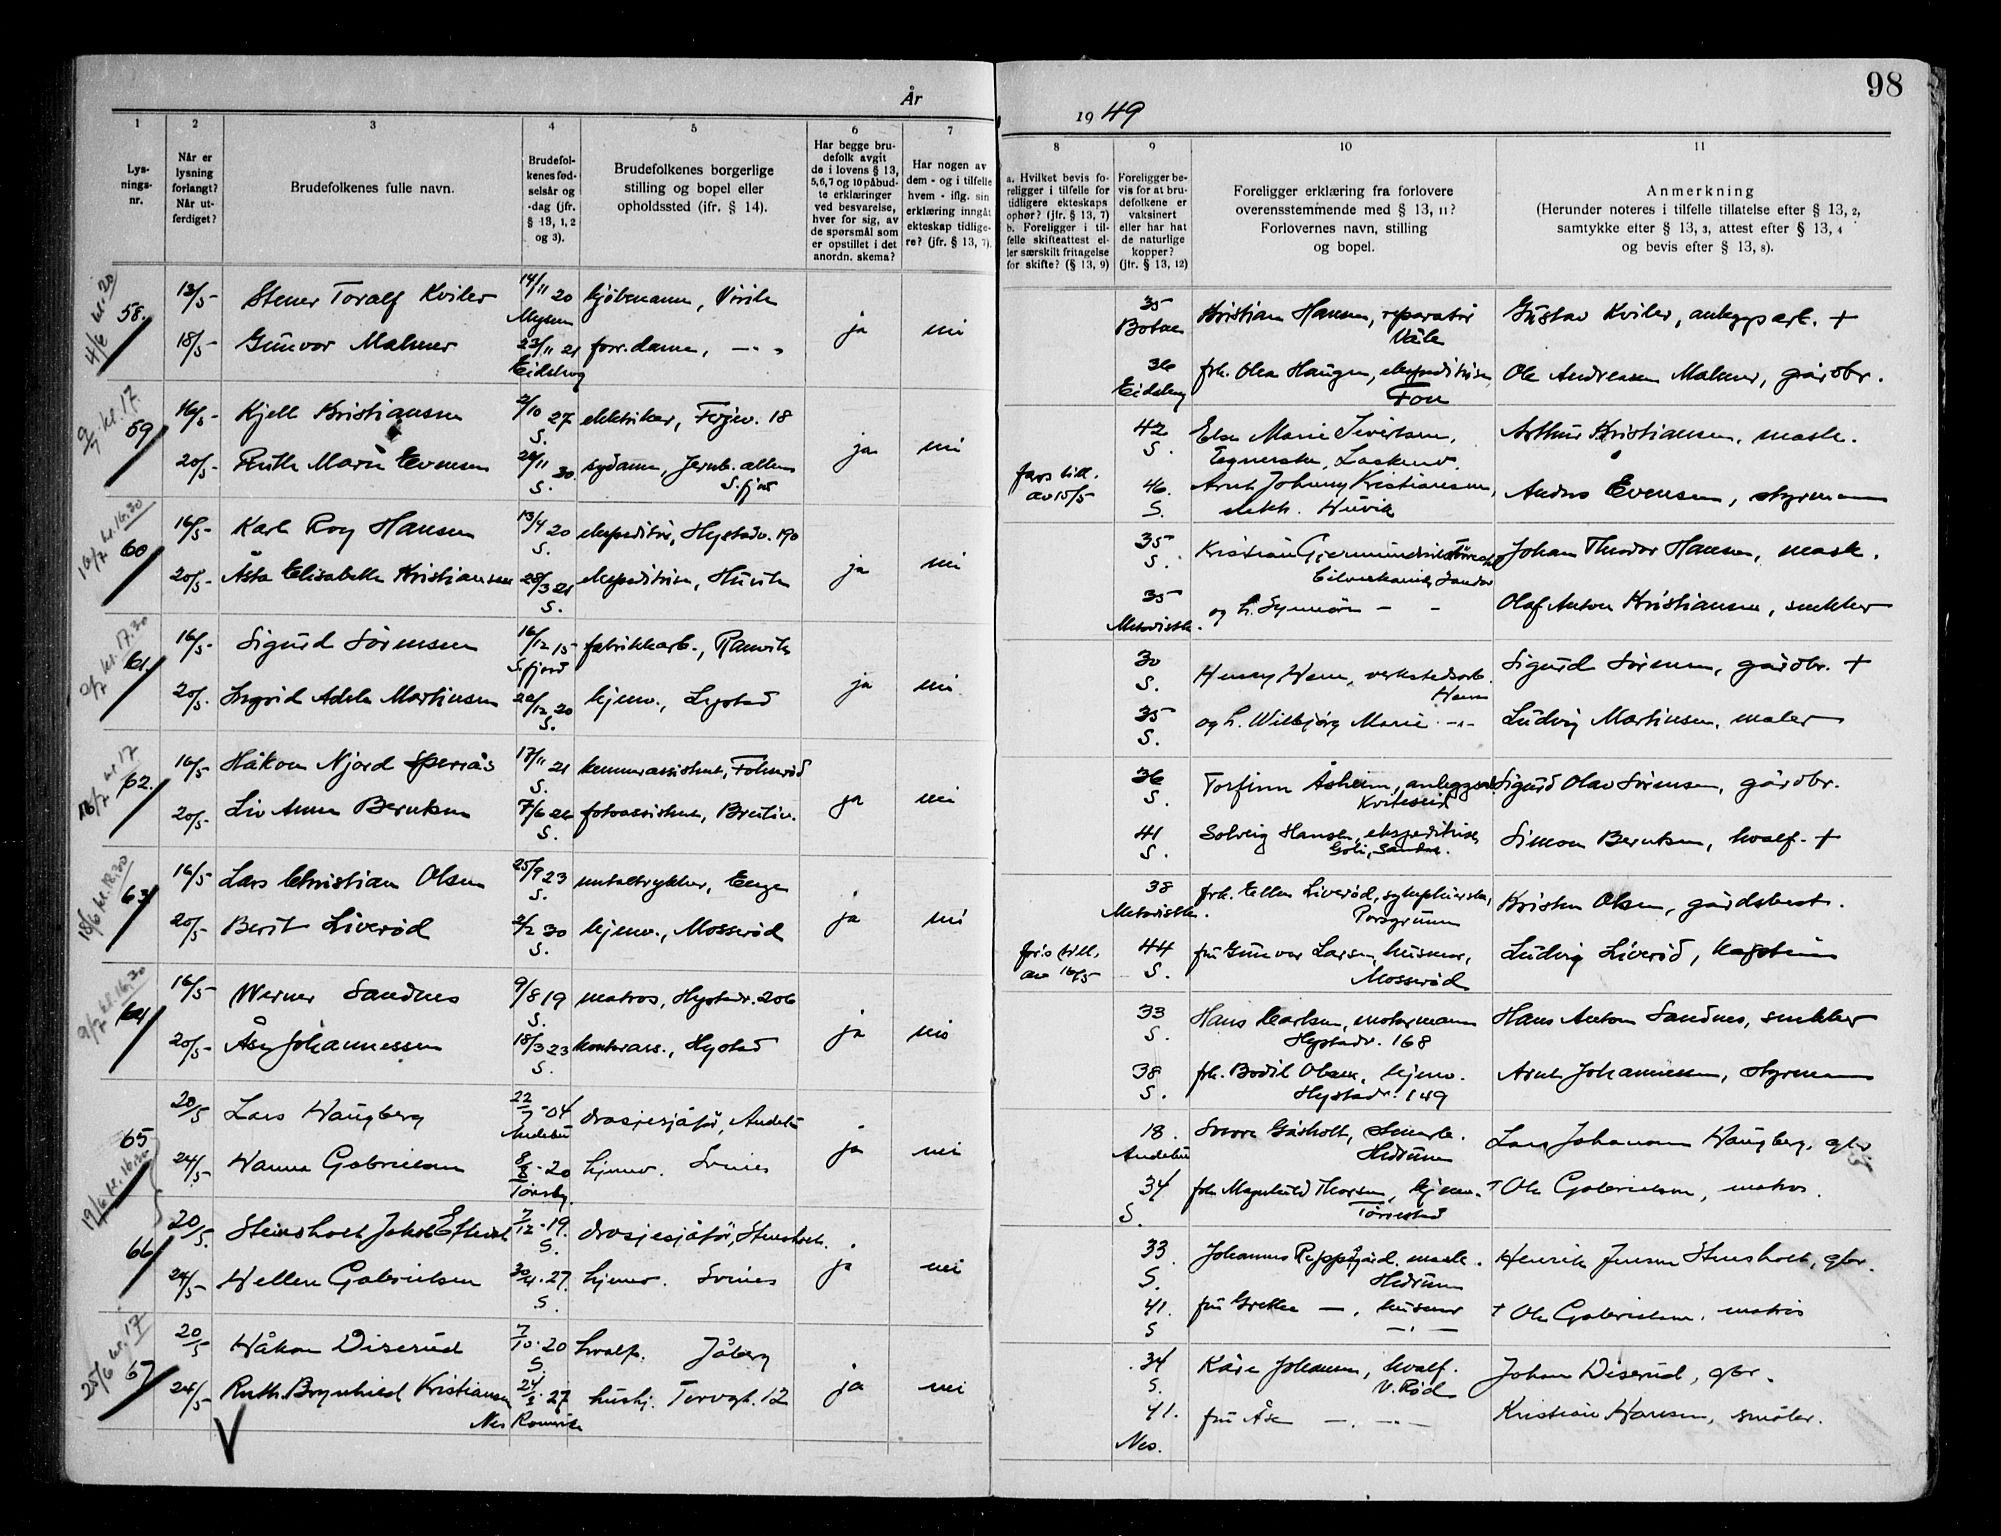 98
År 1949
1 2 3 4 5 6 7 8 9 10 11
Lysningsnr.
Når er lysning forlangt? Når utferdiget?
Brudefolkenes fulle navn.
Brudefolkenes fødselsår og -dag (jfr. § 13, 1, 2 og 3).
Brudefolkenes borgerlige stilling og bopel eller opholdssted (ifr. § 14).
Har begge brudefolk avgit de i lovens § 13, 5, 6, 7 og 10 påbudte erklæringer ved besvarelse, hver for sig, av de spørsmål som er opstillet i det anordn. skema?
Har nogen av dem - og i tilfelle hvem - iflg. sin erklæring inngått ekteskap tidligere? (jfr. § 13, 7).
a. Hvilket bevis foreligger i tilfelle for tidligere ekteskaps ophør? (jfr. § 13, 7)
b. Foreligger i tilfelle skifteattest eller særskilt fritagelse for skifte? (§ 13, 9)
Foreligger bevis for at brudefolkene er vaksinert eller har hat de naturlige kopper? (jfr. § 13, 12)
Foreligger erklæring fra forlovere overensstemmende med § 13, 11? Forlovernes navn, stilling og bopel.
Anmerkning (Herunder noteres i tilfelle tillatelse efter § 13, 2, samtykke efter § 13, 3, attest efter § 13, 4 og bevis efter § 13, 8).
4/6 kl. 20
58. 13/5 Stener Toralf Kviler 14/11 20 Mysen kjøbmann, Virik ja nei 35 Botne Kristian Hansen, reparatør Våle Gustav Kviler, anleggsarb. +
18/5 Gunvor Malmer 23/11 21 Eidsberg forr.dame, — " — 36 Eidsberg frk. Olea Haugen, ekspeditrise, Fon Ole Andreassen Malmer, gårdbr.
9/7 kl. 17.
59 16/5 Kjell Kristiansen 2/10 27 S. elektriker, 18 ja nei 42 S. Else Marie Sivertsen, Tegnerske, Arthur Kristiansen, mask.
20/5 Ruth Marie Evensen 30 S. sydame, Jernb. alleen S.fjord fars till. av 15/5 46. S. Arnt Johnny Kristiansen, elektr. Huvik Anders Evensen, styrmann
16/7 kl. 16.30
60 16/5 Karl Roy Hansen 13/4 20 S. ekspeditør, Hystadv. 170 ja nei 35 S. Kristian Bilmekanik, Sandar Johan Theodor Hansen, mask.
20/5 Åsta Elisabeth Kristiansen 28/3 21 S. ekspeditrise, Huvik 35 Metodistk. og h. Synnöve — — Olaf Anton Kristiansen, snekker
2/7 kl. 17.30
61. 16/5 Sigurd Sørensen 16/12 15 S.fjord fabrikkarb., Ranvik ja nei 30 S. Henry Hem, verkstedarb. Hem Sigurd Sørensen, gårdbr. +
20/5. Ingrid Adele Martinsen 20/12 20 S. hjemv., Hystad 35 S. og h. Wilbjørg Marie — " — Ludvig Martinsen, maler
16/7 kl. 17
62. 16/5 Håkon Njord 17/11 21 S. kemnerassistent, Fokserød ja nei 36 S. Torfinn Åsheim, anleggsarb. Kviteseid Sigurd Olav Sørensen, gårdbr.
20/5. Liv Anna Berntsen 7/6 26 S. fotoassistent, Breiliv. 41 S. Solveig Hansen, ekspeditrise, Goli, Sandar. Simon Berntsen, hvalf. +
18/6 kl. 18.30
63 16/5 Lars Christian Olsen 25/9 23 S. metaltrykker, Enge ja nei 38 Metodistk. frk. Ellen Liverød, sykepleierske, Porsgrunn Kristen Olsen, gårdsbest.
20/5 Berit Liverød 2/2 30 S. hjemv., Mosserød fars till. av 16/5 44 S. fru Gunvor Larsen, husmor, Mosserød Ludvig Liverød, kaptein
9/7 kl. 16.30
64 16/5 Werner Sandnes 9/8 19 S. matros, Hystadv. 206 ja nei 33 S. Hans Carlsen, motormann Hystadv. 168 Hans Anton Sandnes, snekker
20/5 Åse Johannessen 18/3 23 S. kontorass., Hystad 38 S. frk. Bodil Olsen, hjemv. Hystadv. 149 Arnt Johannessen, styrmann
19/6 kl. 16.30
65 20/5 Lars Haugberg 22/7 - 04 Andebu drosjesjåfør, Andebu ja nei 18. Andebu Sverre Gåsholt, Hedrum Lars Johannes Haugberg, gbr.
24/5 Hanna Gabrielsen 8/8 - 20 Tønsbg. hjemv. Svines 34 S. frk. Magnhild Thorsen, hjemv. Tørrestad † Ole Gabrielsen, matros.
66 20/5. Steinsholt, Jakob 7/12 - 19. S. drosjesjåfør, Stensholt. ja nei 33 S. Johannes mask. Hedrum Henrik Jensen Stensholt, gbr.
24/5 Hellen Gabrielsen 30/4. 27. S. hjemv. Svines 41. S fru Grethe —, husmor — " — † Ole Gabrielsen, matros
25/6 kl. 17
67 20/5 Håkon Diserud 7/10 - 20 S. hvalf. Jåberg ja nei 34 S. Kåre Johansen, hvalf. V. Rød Johan Diserud, gbr.
24/5 Ruth Brynhild Kristiansen 27 Nes Romerike hushj. Torvgt. 12 41. Nes. fru Åse — " — Kristian Hansen, småbr.
V